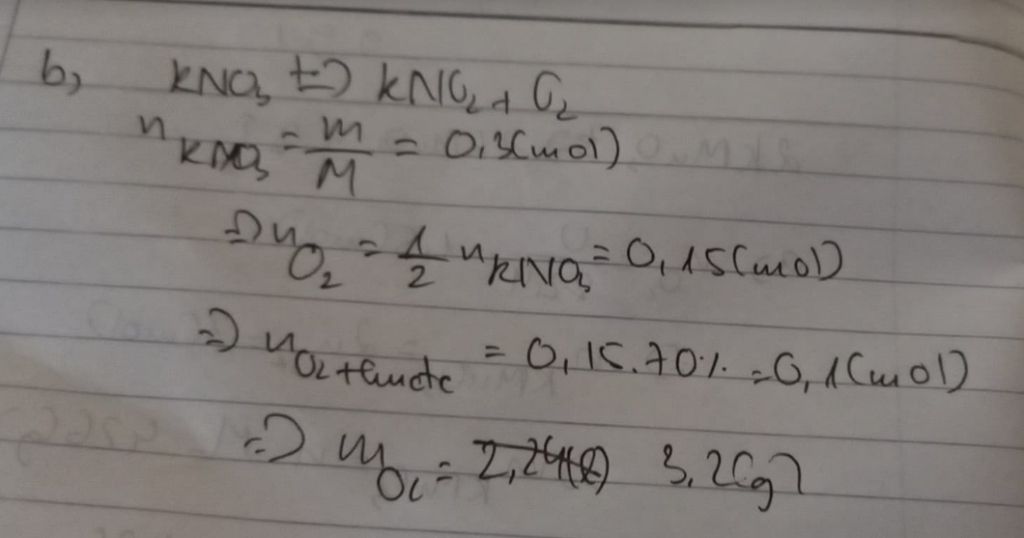 b, KNO₃ t⇒ KNO₂ + O₂
n KNO₃ = m/M = 0,3(mol)
⇒ n O₂ = 1/2 n KNO₃ = 0,15(mol)
⇒ n O₂ = 0,15.70% = 0,1(mol)
⇒ m O₂ = 3,2(g)